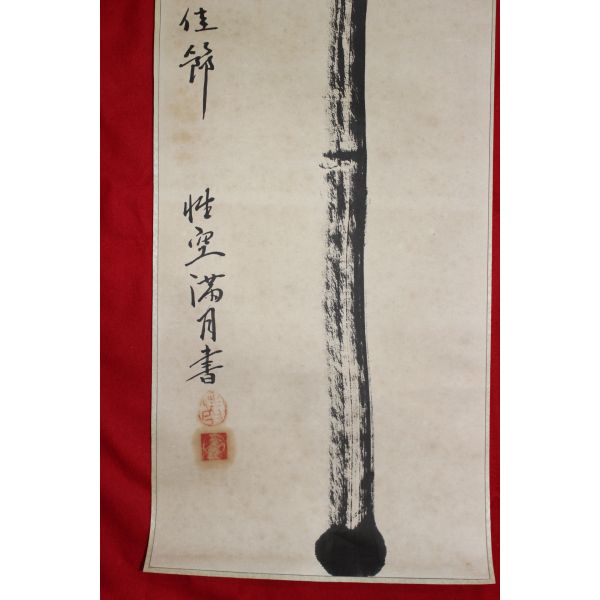 佳節
性空滿月書